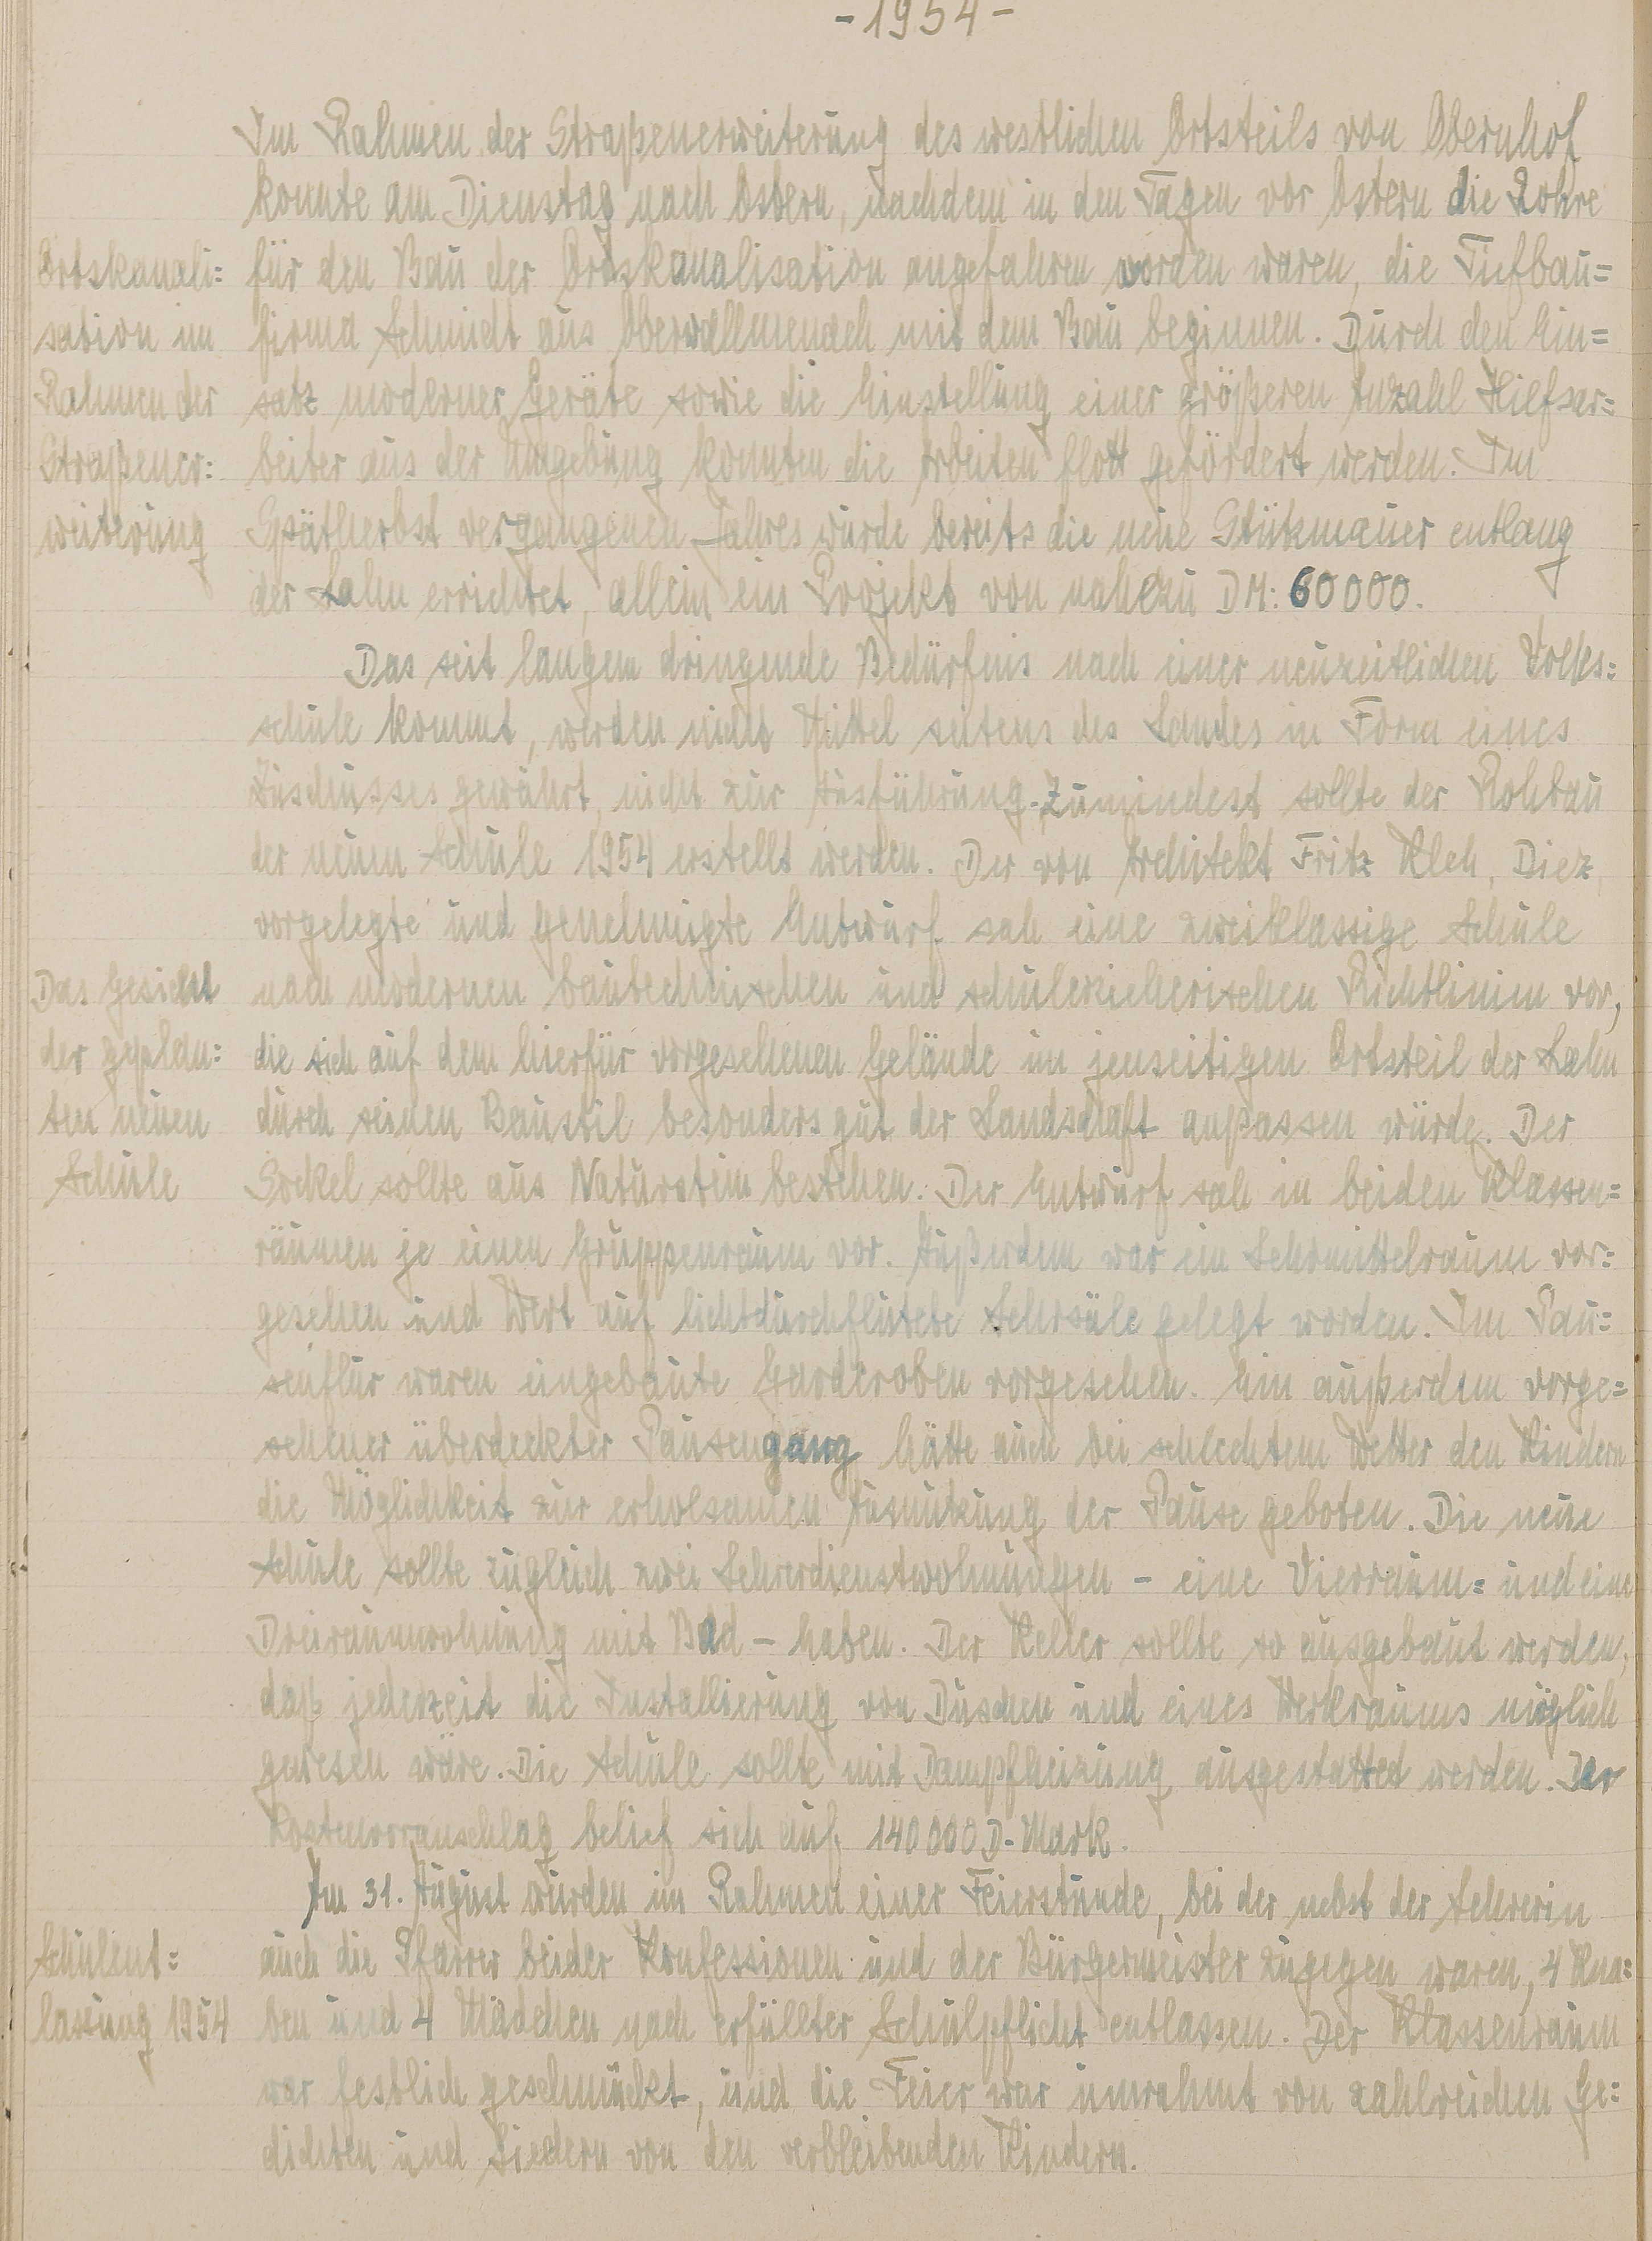 -1954-
Im Rahmen der Straßenerweiterung des westlichen Ortsteils von Obernhof
konnte am Dienstag nach Ostern, nachdem in den Tagen vor Ostern die Rohre
Ortskanali= für den Bau der Ortskanalisation angefahren worden waren, die Tiefbau=
sation im firma Schmidt aus Oberwallmenach mit dem Bau beginnen. Durch den Ein=
Rahmen der satz moderner Geräte sowie die Einstellung einer größeren Anzahl Hilfsar=
Straßener= beiter aus der Umgebung konnten die Arbeiten flott gefördert werden. Im
weiterung Spätherbst vergangenen Jahres wurde bereits die neue Stützmauer entlang
der Lahn errichtet, allein ein Projekt von nahezu DM: 60000.
Das seit langem dringende Bedürfnis nach einer neuzeitlichen Volks=
schule kommt, werden nicht Mittel seitens des Landes in Form eines
Zuschusses gewährt, nicht zur Ausführung. Zumindest sollte der Rohbau
der neuen Schule 1954 erstellt werden. Der von Architekt Fritz Diez,
vorgelegte und genehmigte Entwurf sah eine zweiklassige Schule
Das Gesicht nach modernen bautechnischen und schulerzieherischen Richtlinien vor,
der geplan= die sich auf dem hierfür vorgesehenen Gelände im jenseitigen Ortsteil der Lahn
ten neuen durch seinen Baustil besonders gut der Landschaft anpassen würde. Der
Schule Sockel sollte aus Naturstein bestehen. Der Entwurf sah in beiden Klassen=
räumen je einen Gruppenraum vor. Außerdem war ein Lehrmittelraum vor=
gesehen und Wert auf lichtdurchflutete Lehrsäle gelegt worden. Im Pau=
senflur waren eingebaute Garderoben vorgesehen. Ein außerdem vorge=
sehener überdeckter Pausengang hätte auch bei schlechtem Wetter den Kindern
die Möglichkeit zur erholsamen Ausnutzung der Pause geboten. Die neue
Schule sollte zugleich zwei Lehrerdienstwohnungen - eine Vierraum= und eine
Dreiraumwohnung mit Bad - haben. Der Keller sollte so ausgebaut werden,
daß jederzeit die Installierung von Duschen und eines Werkraums möglich
gewesen wäre. Die Schule sollte mit Dampfheizung ausgestattet werden. Der
Kostenvoranschlag belief sich auf 140000 D-Mark.
Am 31. August wurden im Rahmen einer Feierstunde, bei der nebst der Lehrerin
Schulent= auch die Pfarrer beider Konfessionen und der Bürgermeister zugegen waren, 4 Kna=
lassung 1954 ben und 4 Mädchen nach erfüllter Schulpflicht entlassen. Der Klassenraum
war festlich geschmückt, und die Feier war umrahmt von zahlreichen Ge=
dichten und Liedern von den verbleibenden Kindern.